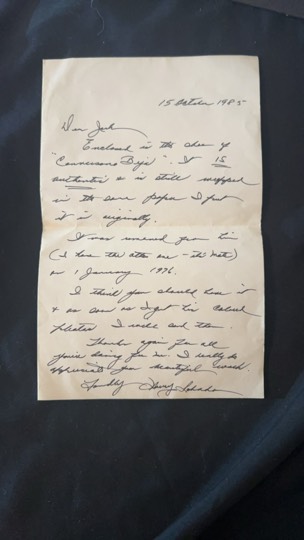 15 October 1985
Dear Jack
Enclosed is the shoe of
"Cameroons Boyo". It IS
authentic & is still wrapped
in the same paper I put
it in originally.
It was removed from him
(I have the other one - its mate)
on 1 January 1976.
I think you should have it
& as soon as I get
I will send them.
Thanks again for all
you're doing for me. I really do
appreciate your beautiful work.
Fondly